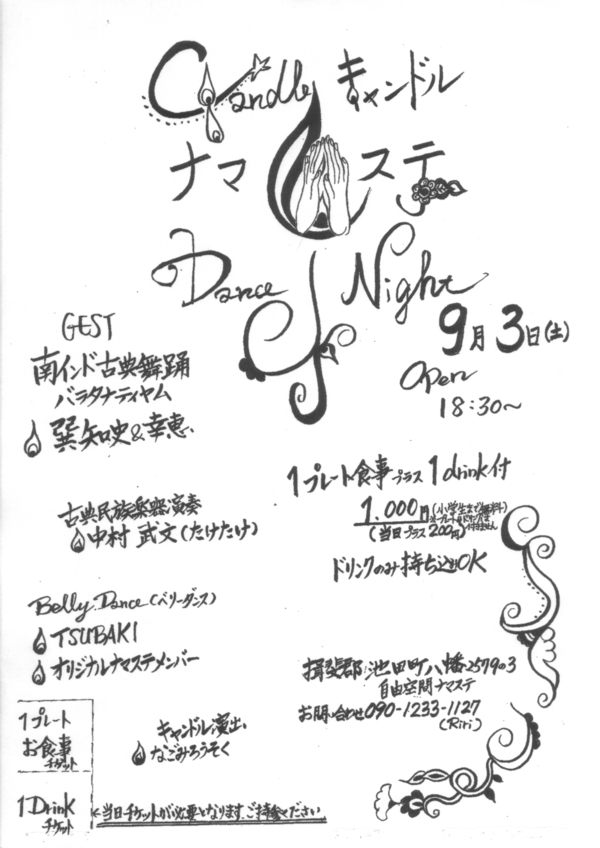 Candle キャンドル
ナマステ
Dance Night
9月3日(土)
Open
18:30~
GEST
南インド古典舞踊
バラタナティヤム
巽知史&幸恵
1プレート食事プラス1drink付
1.000円(小学生まで無料)
(当日プラス200円)
ドリンクのみ持ち込みOK
古典民族楽器演奏
中村 武文(たけたけ)
Belly Dance(ベリーダンス)
TSUBAKI
オリジナルナマステメンバー
揖斐郡池田町八幡2579の3
自由空間ナマステ
お問い合わせ090-1233-1127
(Riri)
キャンドル演出
なごみろうそく
1プレート
お食事
チケット
1Drink
チケット
←当日チケットが必要となります。ご持参ください